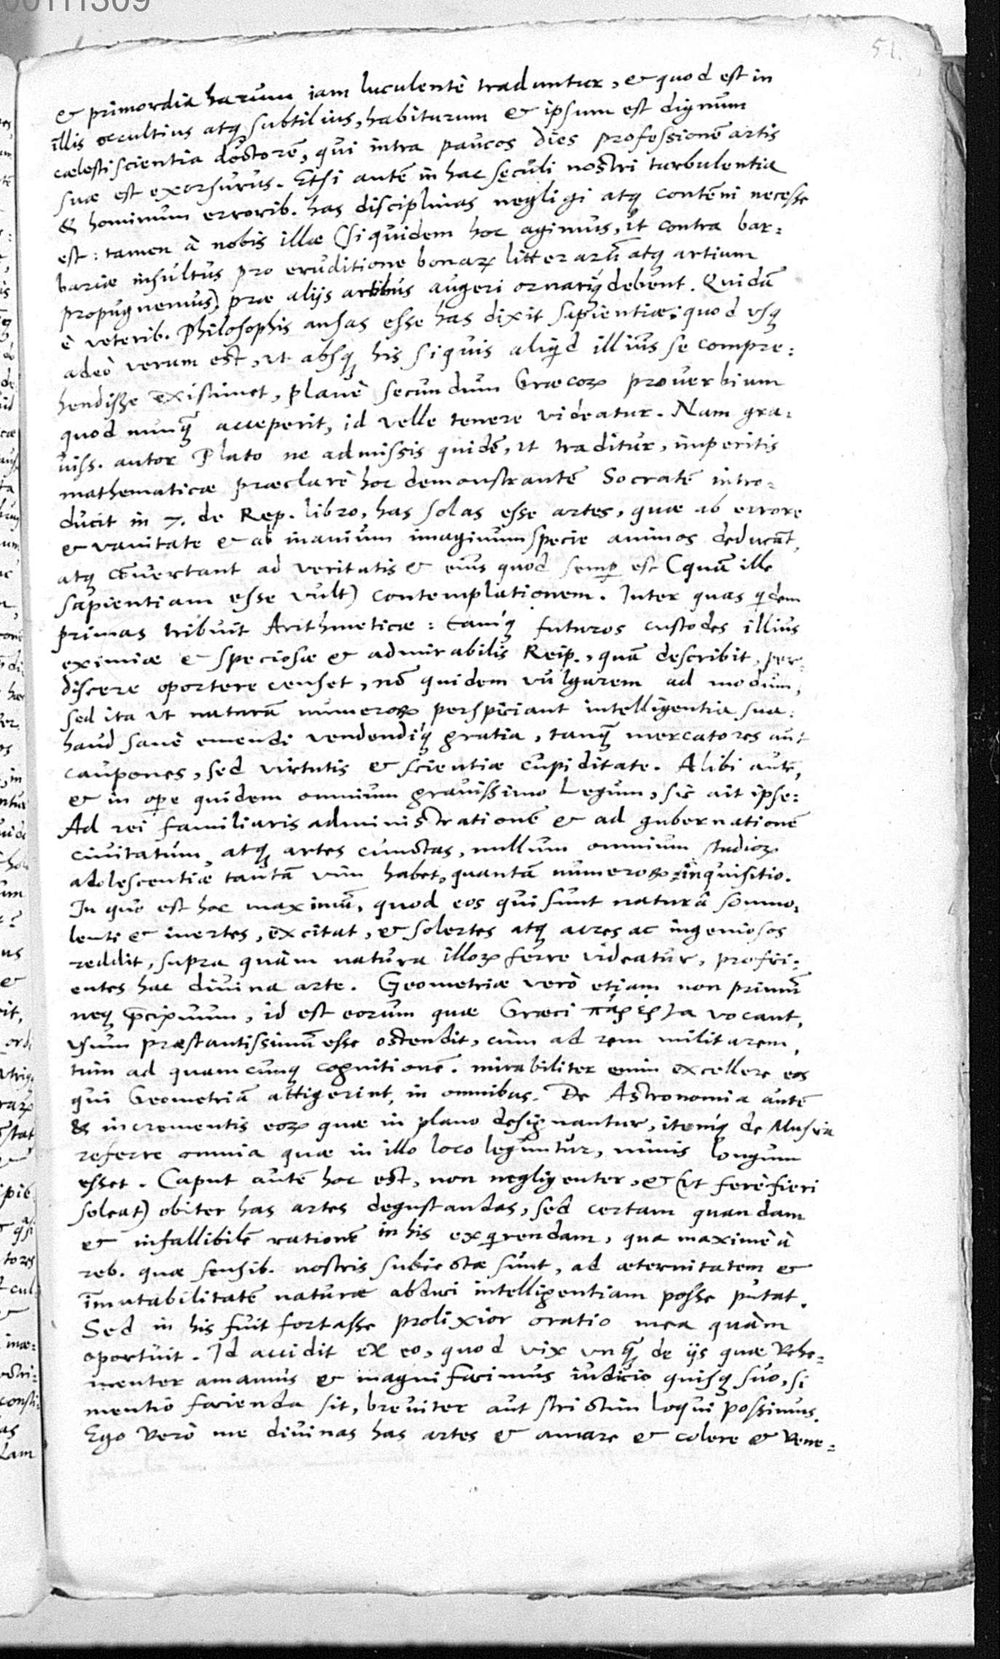 00111309
51.
& primordia harum iam luculentè traduntur, & quod est in
illis occultius atq; subtilius, habiturum & ipsum est dignum
cælesti scientia doctorē, qui intra paucos dies professionē artis
suæ est exorsurus. Etsi autē in hac seculi nostri turbulentia
& hominum errorib. has disciplinas negligi atq; contēni necesse
est: tamen à nobis illæ (siquidem hoc agimus, ut contra bar:
bariæ insultus pro eruditione bonaꝝ litterarū atq; artium
propugnemus) præ alijs artibus augeri ornariq; debent. Quidā
è veterib. Philosophis ansas esse has dixit sapientiæ: quod vsq;
adeò verum est, vt absq; his siquis aliqd illius se compre:
hendisse existimet, planè secundum Græcoꝝ prouerbium
quod nunq̄ acceperit, id velle tenere videatur. Nam gra:
uiss. autor Plato ne admissis quidē, vt traditur, imperitis
mathematicæ præclarè hoc demonstrantē Socratē intro:
ducit in 7. de Rep. libro, has solas esse artes, quæ ab errore
& vanitate & ab inanium imaginum specie animos deducāt,
atq; cōuertant ad veritatis & eius quod semp est (quā ille
sapientiam esse vult) contemplationem. Inter quas qdem
primas tribuit Arithmeticæ: eamq; futuros custodes illius
eximiæ & speciosæ & admirabilis Reip., quā describit, per:
discere oportere censet, nō quidem vulgarem ad modum,
sed ita vt naturā numeroꝝ perspiciant intelligentia sua:
haud sanè emendi vendendiq; gratia, tanq̄ mercatores aut
caupones, sed virtutis & scientiæ cupiditate. Alibi autē,
& in ope quidem omnium grauissimo Legum, sic ait ipse:
Ad rei familiaris administrationē & ad gubernationē
ciuitatum, atq; artes cunctas, nullum omnium studioꝝ
adolescentiæ tantā vim habet, quantā numeroꝝ inquisitio.
In quo est hoc maximū, quod eos qui sunt naturâ somno:
lenti & inertes, excitat, & solertes atq; acres ac ingeniosos
reddit, supra quàm natura illoꝝ ferre videatur, profici:
entes hac diuina arte. Geometriæ verò etiam non primū
neq; pcipuum, id est eorum quæ Græci πάρεργα vocant,
vsum præstantissimū esse ostendit, cùm ad rem militarem,
tum ad quamcunq; cognitionē. mirabiliter enim excellere eos
qui Geometriā attigerint, in omnibus. De Astronomia autē
& incrementis eoꝝ quæ in plano designantur, itemq; de Musica
referre omnia quæ in illo loco leguntur, nimis longum
esset. Caput autē hoc est, non negligenter, & (vt ferè fieri
soleat) obiter has artes degustandas, sed certam quandam
& infallibilē rationē in his exqrendam, qua maximè à
reb. quæ sensib. nostris subiectæ sunt, ad æternitatem &
īmutabilitatē naturæ abduci intelligentiam posse putat.
Sed in his fuit fortasse prolixior oratio mea quàm
oportuit. Id accidit ex eo, quod vix vnq̄ de ijs quæ vehe:
menter amamus & magni facimus iudicio quisq; suo, si
mentio facienda sit, breuiter aut strictim loqui possimus.
Ego verò me diuinas has artes & amare & colere & vene: